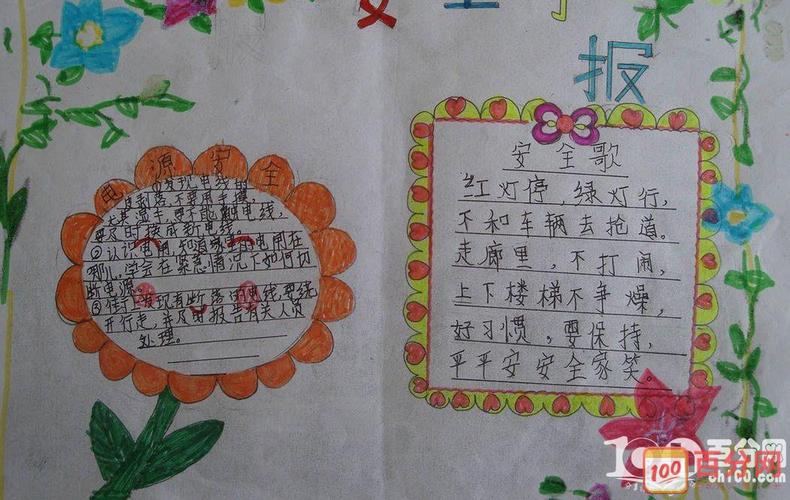 安全手
报
电源安全
①发现电线的
皮剥落,不要用手摸,
尤其湿手,更不能触电线,
要及时换成新电线。
②认识电闸,知道家中的电闸在
哪儿,学会在紧急情况下如何切
断电源
③街上发现有断落的电线,要绕
开行走,并及时报告有关人员
处理。
安全歌
红灯停,绿灯行,
不和车辆去抢道。
走廊里,不打闹,
上下楼梯不争燥,
好习惯,要保持,
平平安安全家笑。
100百分网
oh100.com
100 百分网